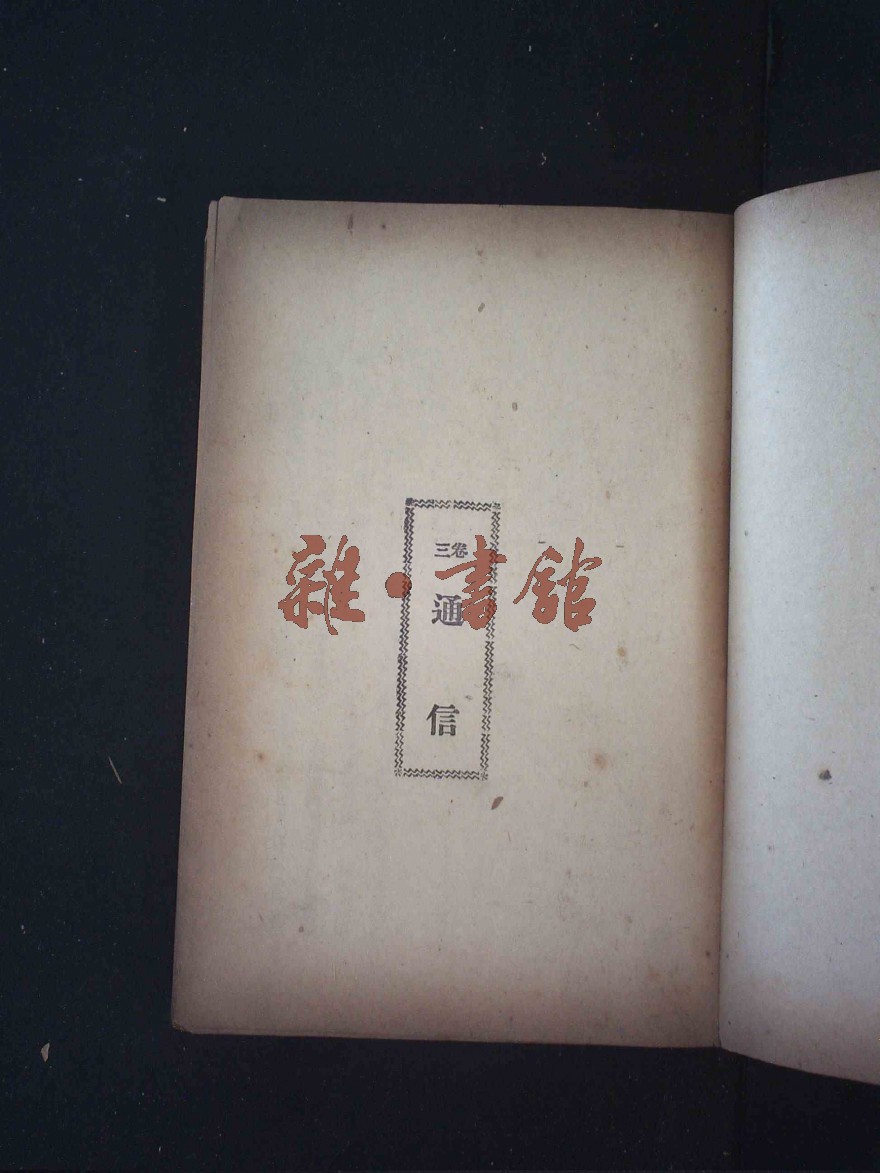 卷三
通信
雜·書館